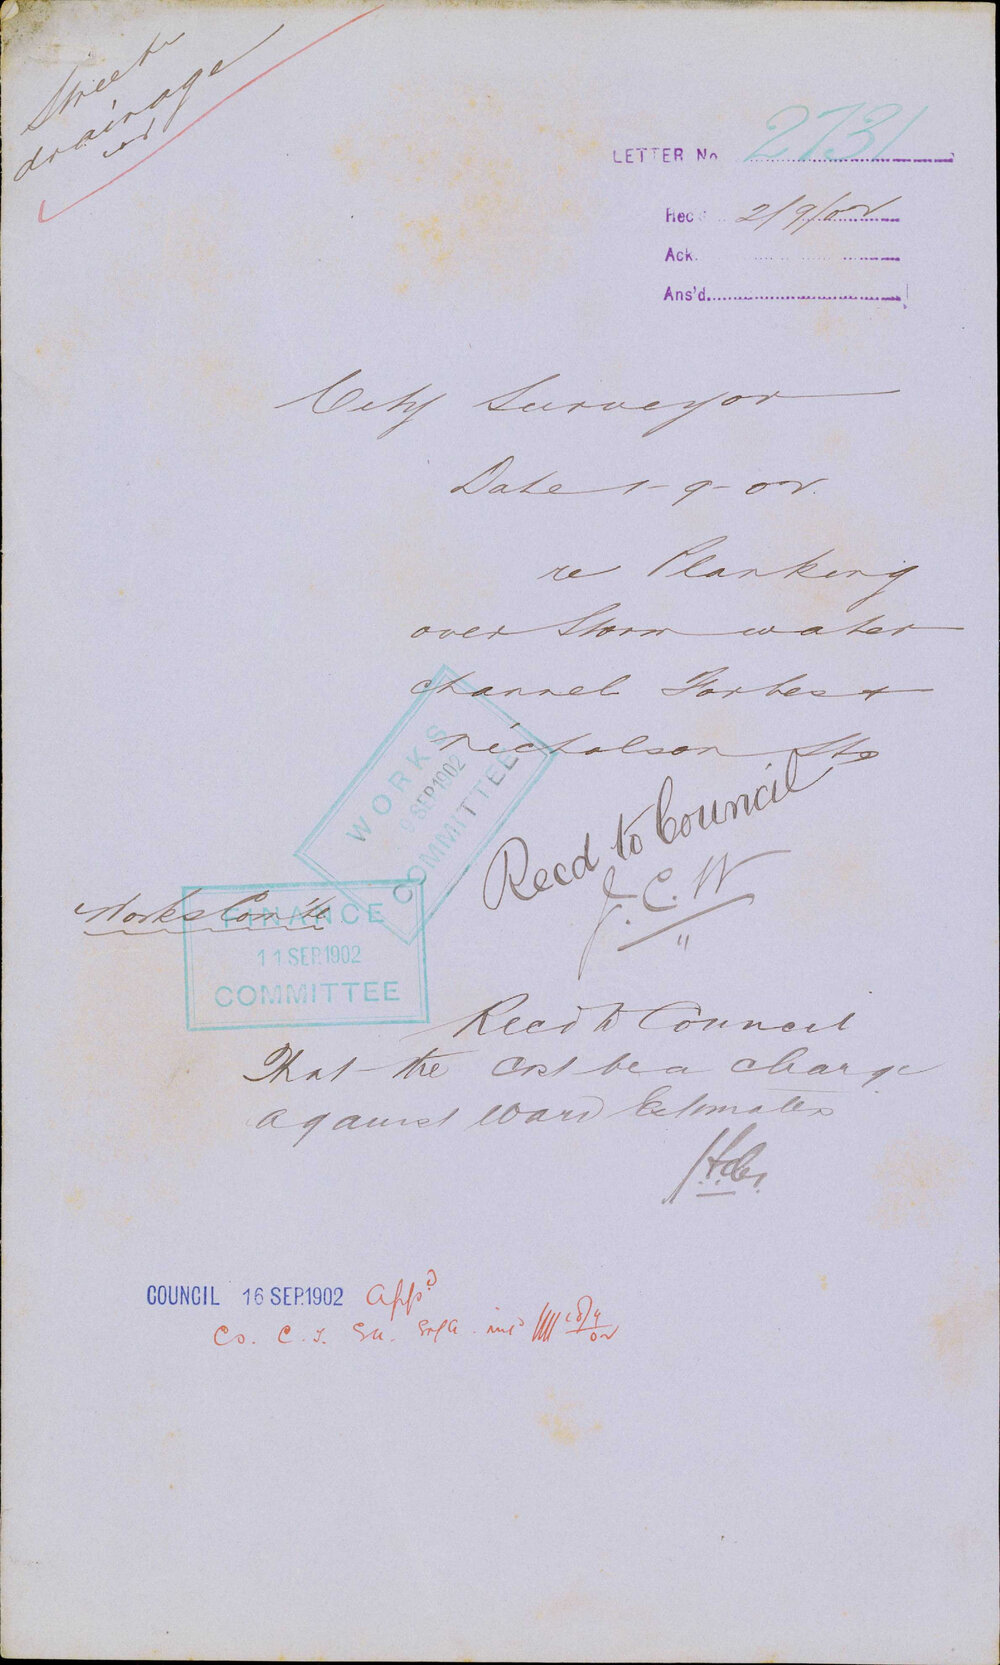 Streets
drainage
LETTER No 2731
Rec'd 2/9/02
Ack.
Ans'd.
City Surveyor
Date 1-9-02.
re Planking
over Storm water
channel Forbes &
Nicholson Sts
WORKS
9 SEP 1902
COMMITTEE
Recd to Council
J.C.W
Works Com'tee
FINANCE
11 SEP. 1902
COMMITTEE
Recd to Council
That the cost be a charge
against Ward Estimates
COUNCIL 16 SEP. 1902 app.d